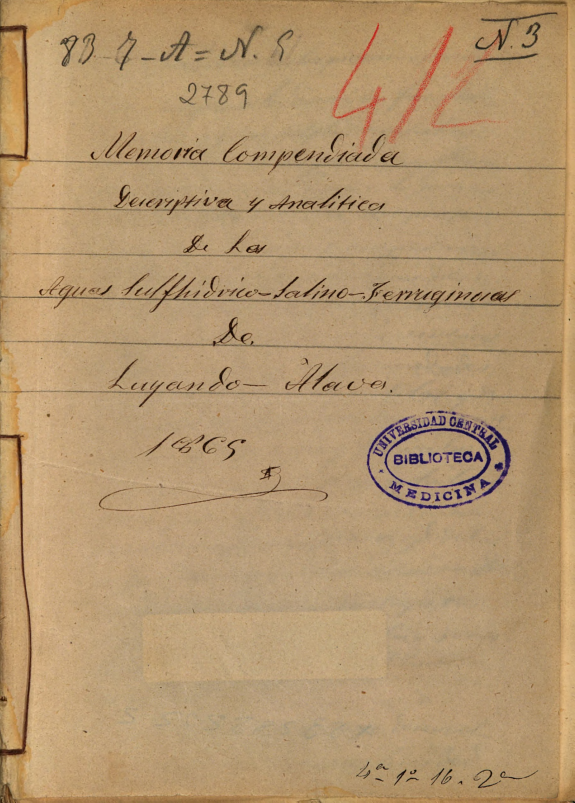 83 7-A=N. 5
N. 3
2789
4/2
Memoria Compendiada
Descriptiva y Analitica
De Las
Aguas Sulfhidrico-Salino-Ferruginosas
De
Luyando-Álava.
1865
UNIVERSIDAD CENTRAL
BIBLIOTECA
MEDICINA
4ª 1º 16. 2ª